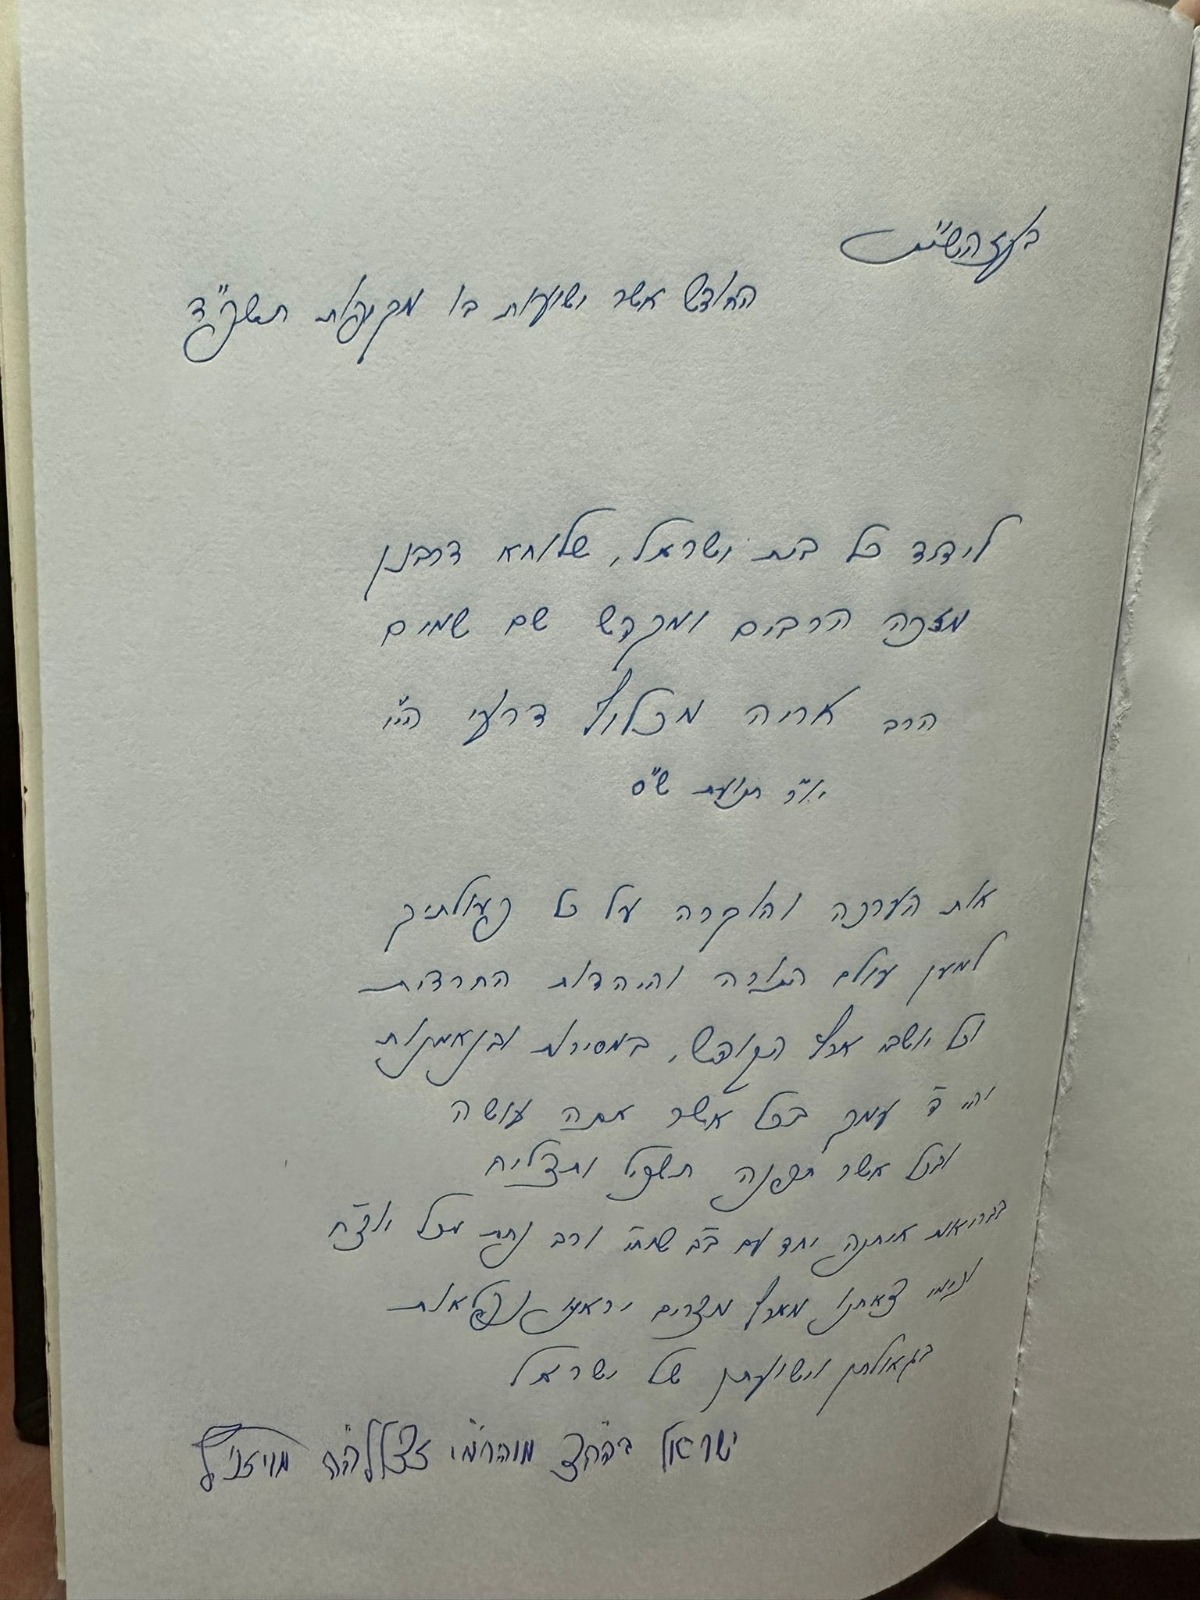 בעזהשי"ת
החודש אשר ישועות בו מקיפות תשפ"ד
לידיד כל בית ישראל, שלוחא דרבנן
מזכה הרבים ומקדש שם שמים
הרב אריה מכלוף דרעי הי"ו
יו"ר תנועת ש"ס
את הערכה והוקרה על כל פעולתיך
למען עולם התורה והיהדות החרדית
וכל יושבי ארץ הקודש, במסירות ובנאמנות
ויהי ד' עמך בכל אשר אתה עושה
ובכל אשר תפנה תשכיל ותצליח
בבריאות איתנה יחד עם ב"ב שיחי' ורב נחת מכל יוצ"ח
וכימי צאתנו מארץ מצרים יראנו נפלאות
בגאולתן וישועתן של ישראל
ישראל בהה"צ מוהרמ"י זצללה"ה מויזניץ